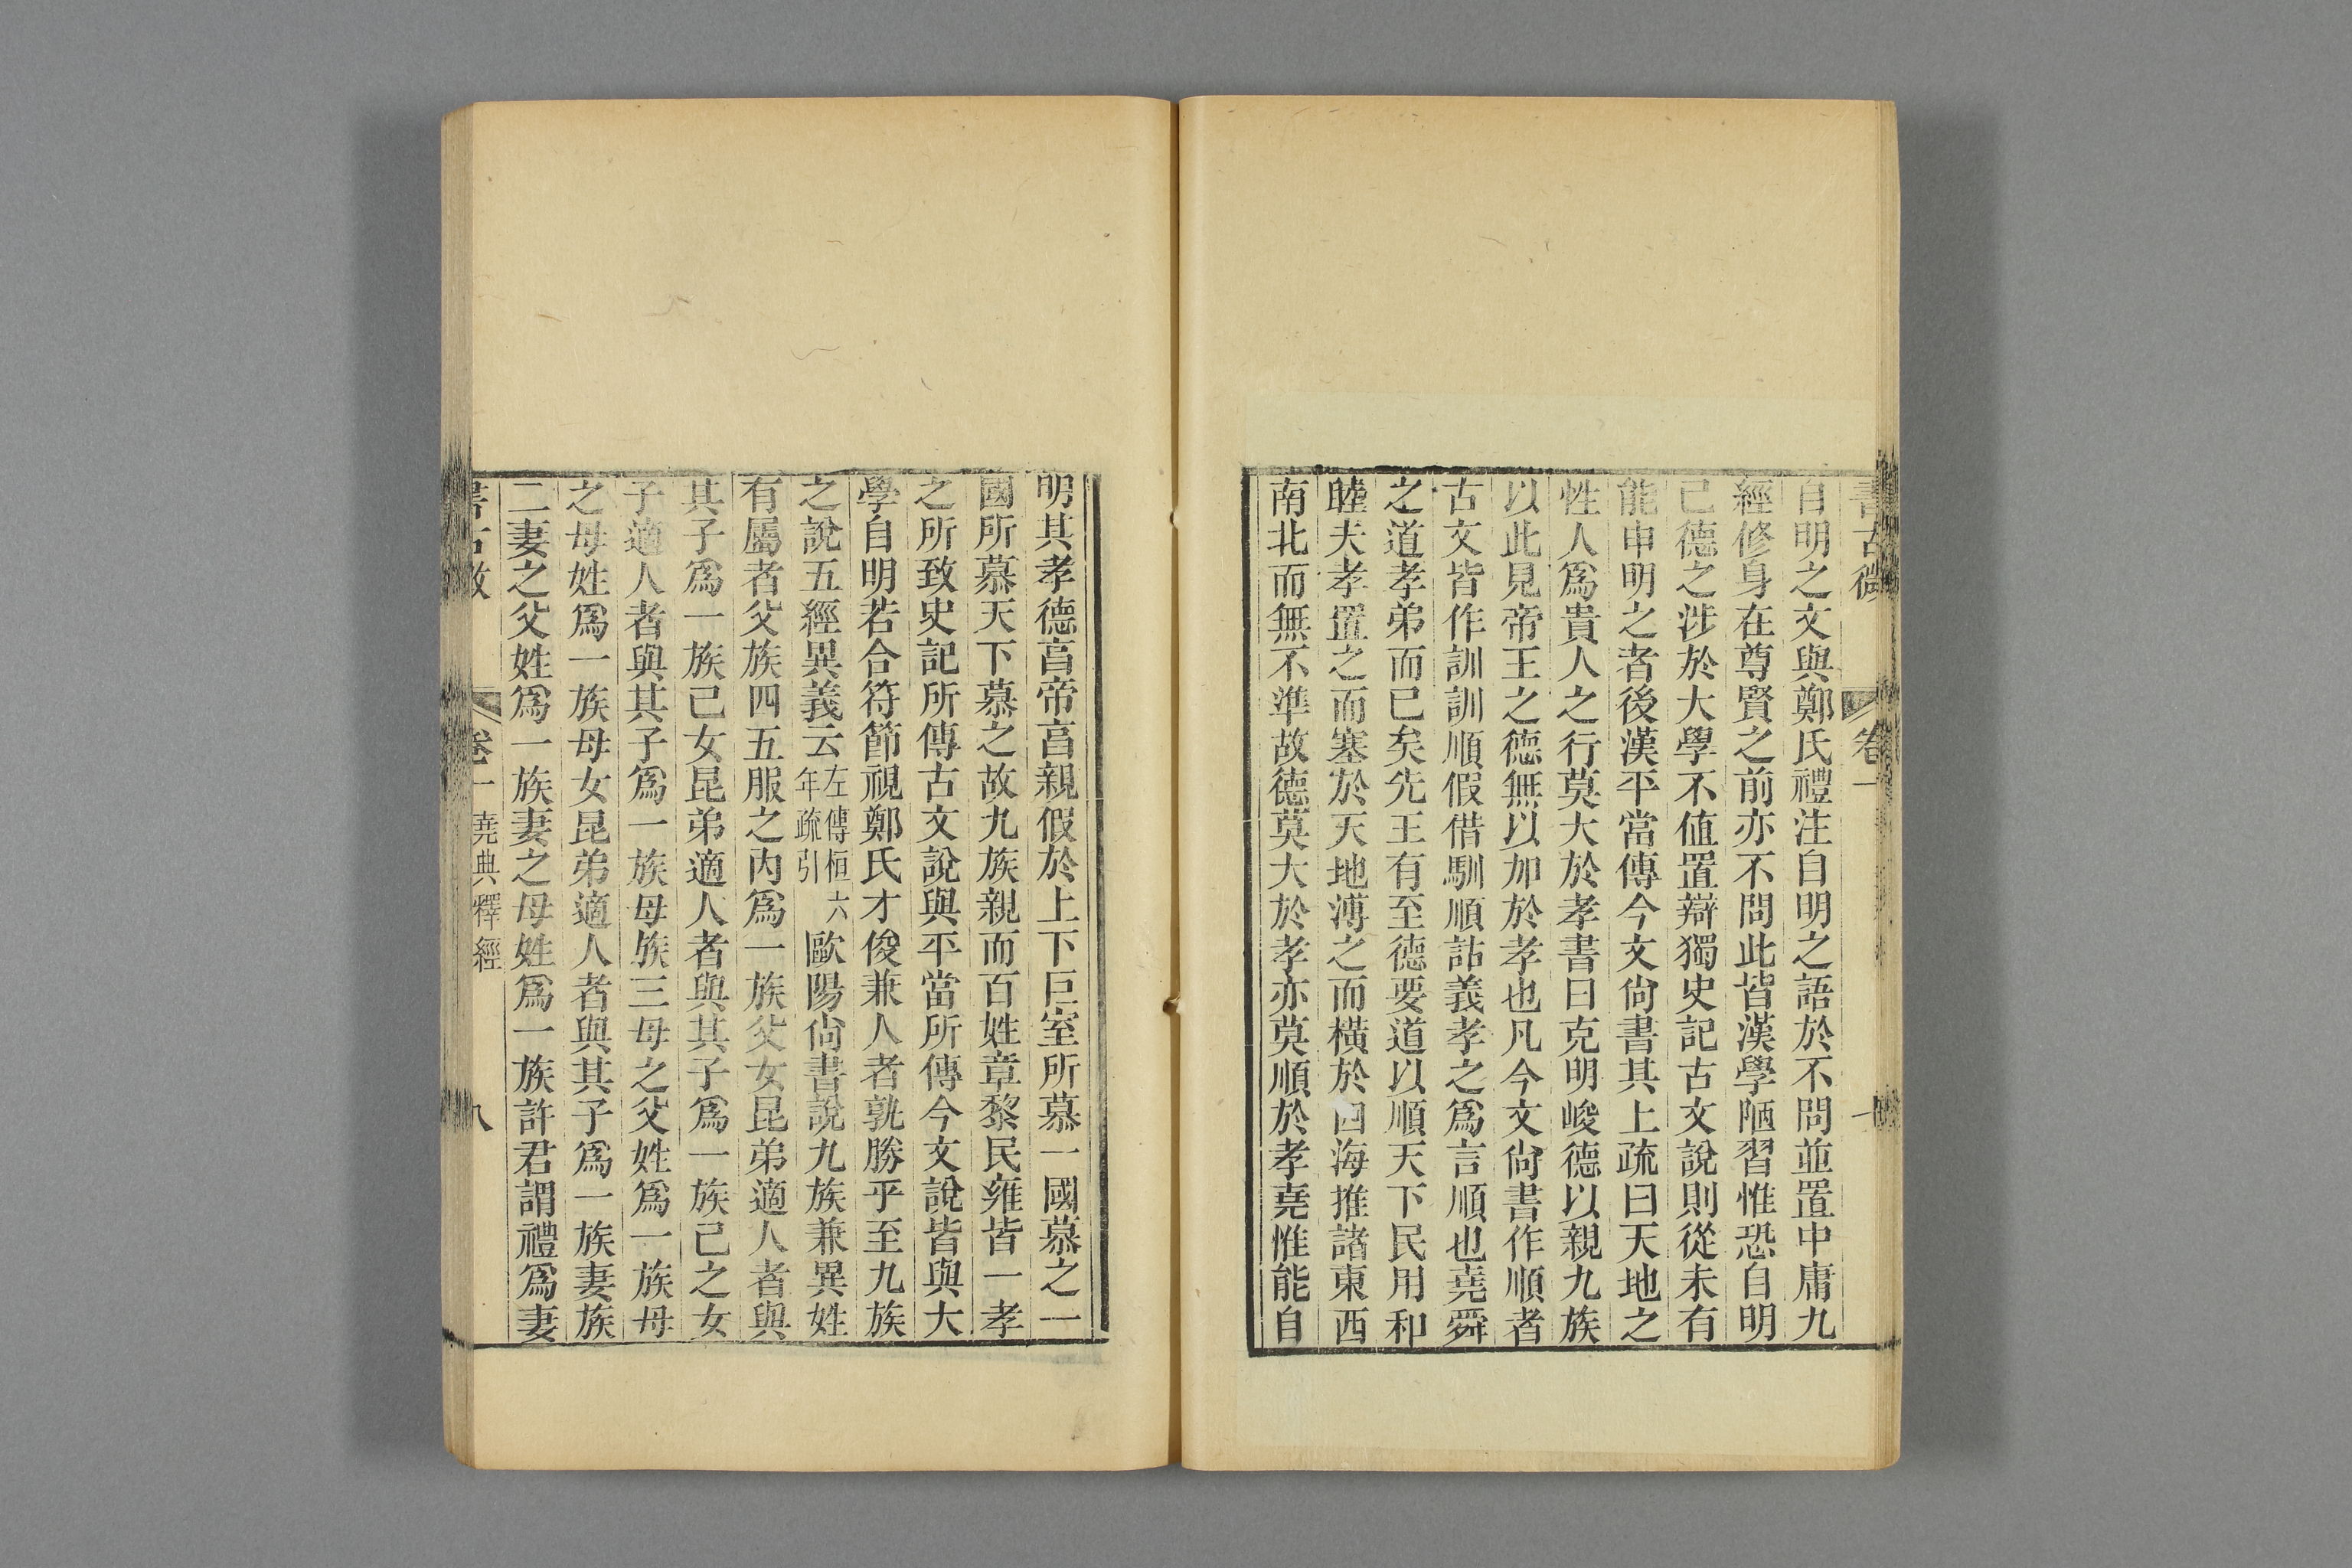 書古微
卷一
自明之文與鄭氏禮注自明之語於不問並置中庸九
經修身在尊賢之前亦不問此皆漢學陋習惟恐自明
己德之涉於大學不値置辯獨史記古文說則從未有
能申明之者後漢平當傳今文尙書其上疏曰天地之
性人爲貴人之行莫大於孝書曰克明峻德以親九族
以此見帝王之德無以加於孝也凡今文尙書作順者
古文皆作訓訓順假借馴順詁義孝之爲言順也堯舜
之道孝弟而已矣先王有至德要道以順天下民用和
睦夫孝置之而塞於天地溥之而橫於四海推諸東西
南北而無不準故德莫大於孝亦莫順於孝堯惟能自
明其孝德亯帝亯親假於上下巨室所慕一國慕之一
國所慕天下慕之故九族親而百姓章黎民雍皆一孝
之所致史記所傳古文說與平當所傳今文說皆與大
學自明若合符節視鄭氏才俊兼人者孰勝乎至九族
之說五經異義云左傳桓六年疏引歐陽尙書說九族兼異姓
有屬者父族四五服之內爲一族父女昆弟適人者與
其子爲一族己女昆弟適人者與其子爲一族己之女
子適人者與其子爲一族母族三母之父姓爲一族母
之母姓爲一族母女昆弟適人者與其子爲一族妻族
二妻之父姓爲一族妻之母姓爲一族許君謂禮爲妻
書古微
卷一 堯典釋經
八